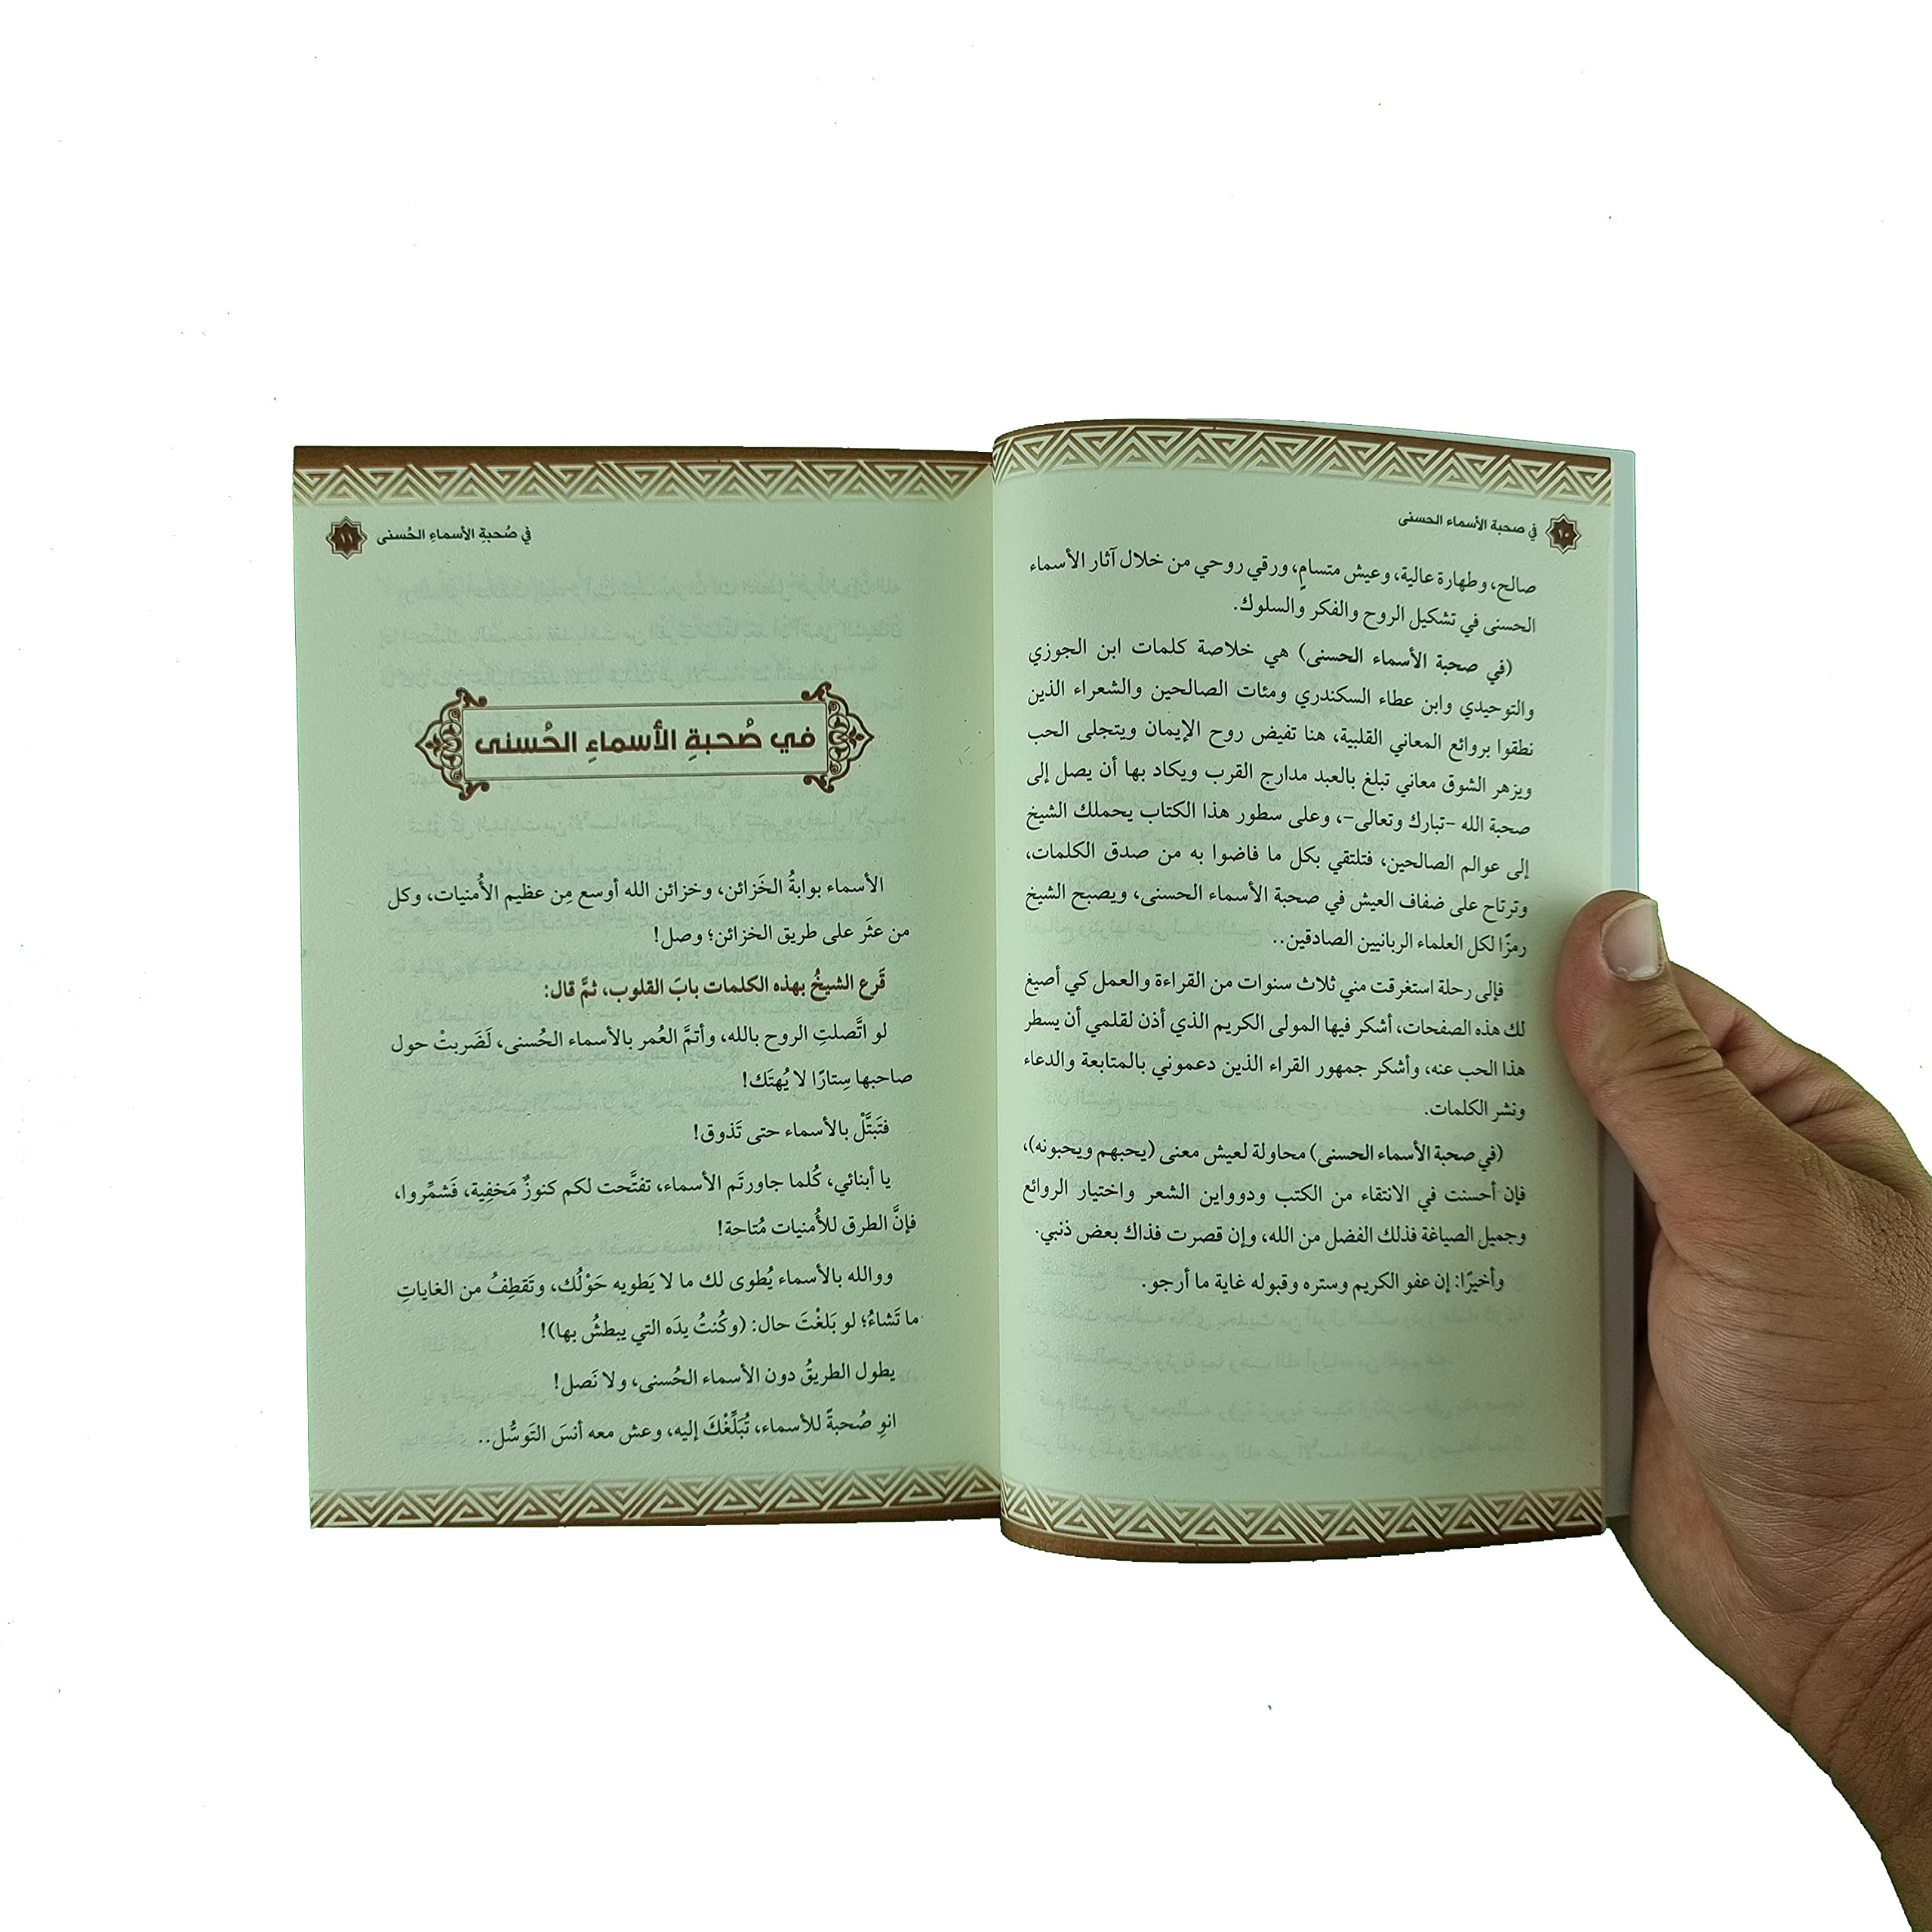 في صحبة الأسماء الحسنى ١٠
صالح، وطهارة عالية، وعيش متسامٍ، ورقي روحي من خلال آثار الأسماء
الحسنى في تشكيل الروح والفكر والسلوك.
(في صحبة الأسماء الحسنى) هي خلاصة كلمات ابن الجوزي
والتوحيدي وابن عطاء السكندري ومئات الصالحين والشعراء الذين
نطقوا بروائع المعاني القلبية، هنا تفيض روح الإيمان ويتجلى الحب
ويزهر الشوق معاني تبلغ بالعبد مدارج القرب ويكاد بها أن يصل إلى
صحبة الله -تبارك وتعالى-، وعلى سطور هذا الكتاب يحملك الشيخ
إلى عوالم الصالحين، فتلتقي بكل ما فاضوا به من صدق الكلمات،
وترتاح على ضفاف العيش في صحبة الأسماء الحسنى، ويصبح الشيخ
رمزًا لكل العلماء الربانيين الصادقين..
فإلى رحلة استغرقت مني ثلاث سنوات من القراءة والعمل كي أصيغ
لك هذه الصفحات، أشكر فيها المولى الكريم الذي أذن لقلمي أن يسطر
هذا الحب عنه، وأشكر جمهور القراء الذين دعموني بالمتابعة والدعاء
ونشر الكلمات.
(في صحبة الأسماء الحسنى) محاولة لعيش معنى (يحبهم ويحبونه)،
فإن أحسنت في الانتقاء من الكتب ودوواين الشعر واختيار الروائع
وجميل الصياغة فذلك الفضل من الله، وإن قصرت فذاك بعض ذنبي.
وأخيرًا: إن عفو الكريم وستره وقبوله غاية ما أرجو.
في صُحبةِ الأسماءِ الحُسنى ١١
في صُحبةِ الأسماءِ الحُسنى
الأسماء بوابةُ الخَزائن، وخزائن الله أوسع مِن عظيم الأُمنيات، وكل
من عثَر على طريق الخزائن؛ وصل!
قَرع الشيخُ بهذه الكلمات بابَ القلوب، ثمَّ قال:
لو اتَّصلتِ الروح بالله، وأتمَّ العُمر بالأسماء الحُسنى، لَضَربتْ حول
صاحبها سِتارًا لا يُهتَك!
فتَبتَّلْ بالأسماء حتى تَذوق!
يا أبنائي، كُلما جاورتَم الأسماء، تفتَّحت لكم كنوزٌ مَخفِية، فَشمِّروا،
فإنَّ الطرق للأُمنيات مُتاحة!
ووالله بالأسماء يُطوى لك ما لا يَطويه حَوْلُك، وتَقطِفُ من الغاياتِ
ما تَشاءُ؛ لو بَلغْتَ حال: (وكُنتُ يدَه التي يبطشُ بها)!
يطول الطريقُ دون الأسماء الحُسنى، ولا نَصل!
انوِ صُحبةً للأسماء، تُبَلِّغْكَ إليه، وعش معه أنسَ التَوسُّل..